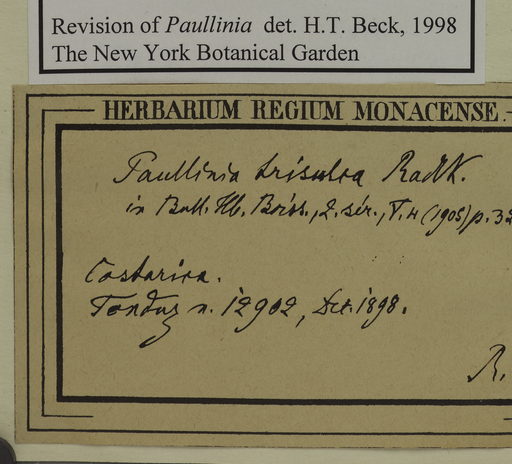 Revision of Paullinia det. H.T. Beck, 1998
The New York Botanical Garden
HERBARIUM REGIUM MONACENSE.
Paullinia trisulca Radlk.
in Bull. Hb. Boiss., 2. sér., T. 4 (1905) p. 32
Costarica.
Tonduz n. 12902, Dct. 1898.
R.